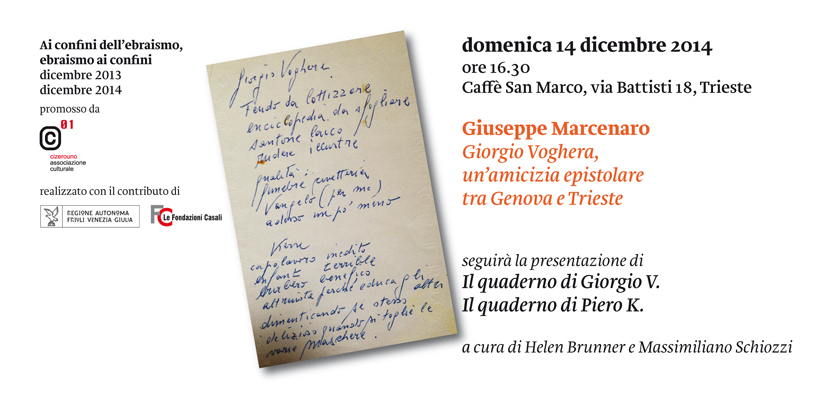 Ai confini dell'ebraismo,
ebraismo ai confini
dicembre 2013
dicembre 2014
promosso da
© 01
cizerouno
associazione
culturale
realizzato con il contributo di
REGIONE AUTONOMA
FRIULI VENEZIA GIULIA
FC Le Fondazioni Casali
Giorgio Voghera
Feudo da lottizzare
enciclopedia da sfogliare
santone laico
rudere illustre
qualità:
funebre
Vangelo (per me)
adesso un po' meno
Kern
capolavoro inedito
enfant terrible
burbero benefico
altruista perché educa gli altri
dimenticando se stesso
delizioso quando si toglie le
varie maschere.
domenica 14 dicembre 2014
ore 16.30
Caffè San Marco, via Battisti 18, Trieste
Giuseppe Marcenaro
Giorgio Voghera,
un'amicizia epistolare
tra Genova e Trieste
seguirà la presentazione di
Il quaderno di Giorgio V.
Il quaderno di Piero K.
a cura di Helen Brunner e Massimiliano Schiozzi